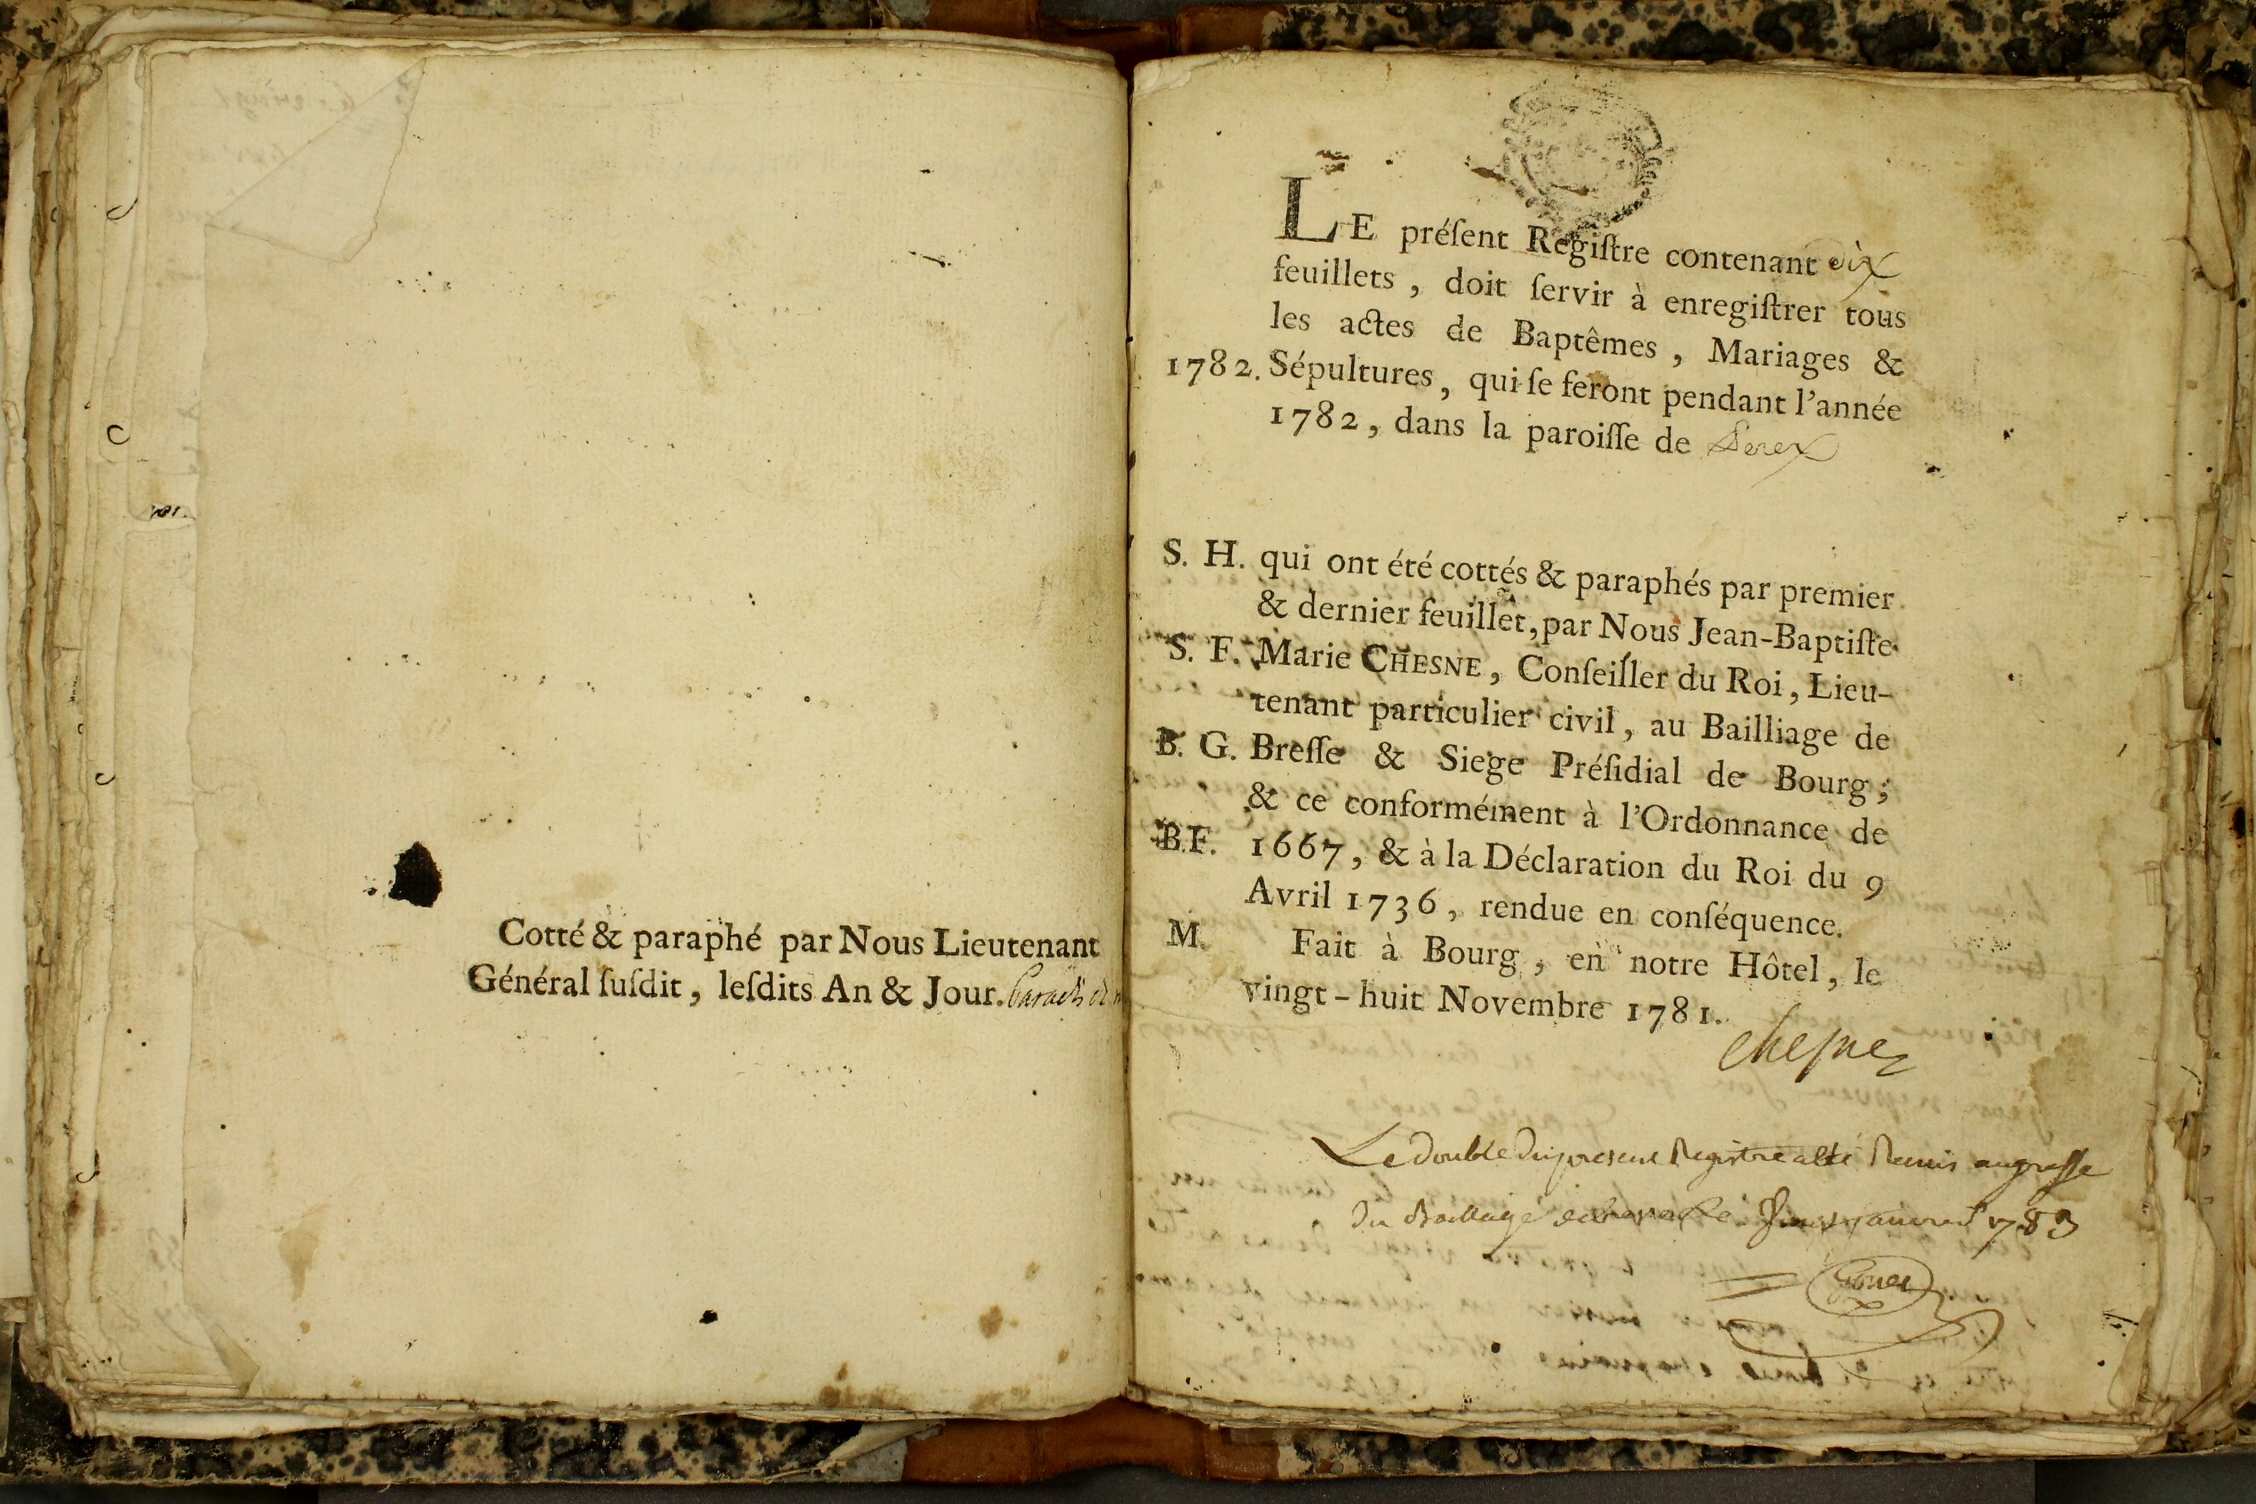 Cotté & paraphé par Nous Lieutenant
Général ſuſdit, leſdits An & Jour.
LE préſent Regiſtre contenant dix
feuillets, doit ſervir à enregiſtrer tous
les actes de Baptêmes, Mariages &
1782. Sépultures, qui ſe feront pendant l'année
1782, dans la paroiſſe de
S. H. qui ont été cottés & paraphés par premier
& dernier feuillet, par Nous Jean-Baptiſte
S. F. Marie CHESNE, Conſeiller du Roi, Lieu-
tenant particulier civil, au Bailliage de
B. G. Breſſe & Siege Préſidial de Bourg;
& ce conformément à l'Ordonnance de
B.F. 1667, & à la Déclaration du Roi du 9
Avril 1736, rendue en conſéquence.
M. Fait à Bourg, en notre Hôtel, le
vingt-huit Novembre 1781.
Chesne
Le double du present Registre a été Remis au greffe
du Baillage janvier 1783